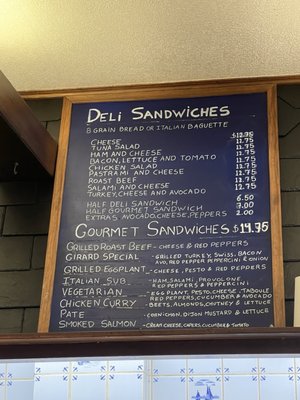 DELI SANDWICHES
8 GRAIN BREAD OR ITALIAN BAGUETTE
CHEESE $12.75
TUNA SALAD 11.75
HAM AND CHEESE 11.75
BACON, LETTUCE AND TOMATO 11.75
CHICKEN SALAD 11.75
PASTRAMI AND CHEESE 11.75
ROAST BEEF 11.75
SALAMI AND CHEESE 11.75
TURKEY, CHEESE AND AVOCADO 12.75
HALF DELI SANDWICH 6.50
HALF GOURMET SANDWICH
EXTRAS AVOCADO, CHEESE, PEPPERS 2.00
GOURMET SANDWICHES $14.75
GRILLED ROAST BEEF - CHEESE & RED PEPPERS
GIRARD SPECIAL - GRILLED TURKEY, SWISS, BACON
AVO, RED PEPPER PEPERCINI & ONION
GRILLED EGGPLANT - CHEESE, PESTO & RED PEPPERS
ITALIAN SUB - HAM, SALAMI, PROVOLONE
RED PEPPERS & PEPPERCINI
VEGETARIAN - EGG PLANT, PESTO, CHEESE, TABOULE
RED PEPPERS, CUCUMBER & AVOCADO
CHICKEN CURRY - BEETS, ALMONDS, CHUTNEY & LETTUCE
PATE - CORNICHON, DIJON MUSTARD & LETTUCE
SMOKED SALMON - CREAM CHEESE, CAPERS, CUCUMBER & TOMATO